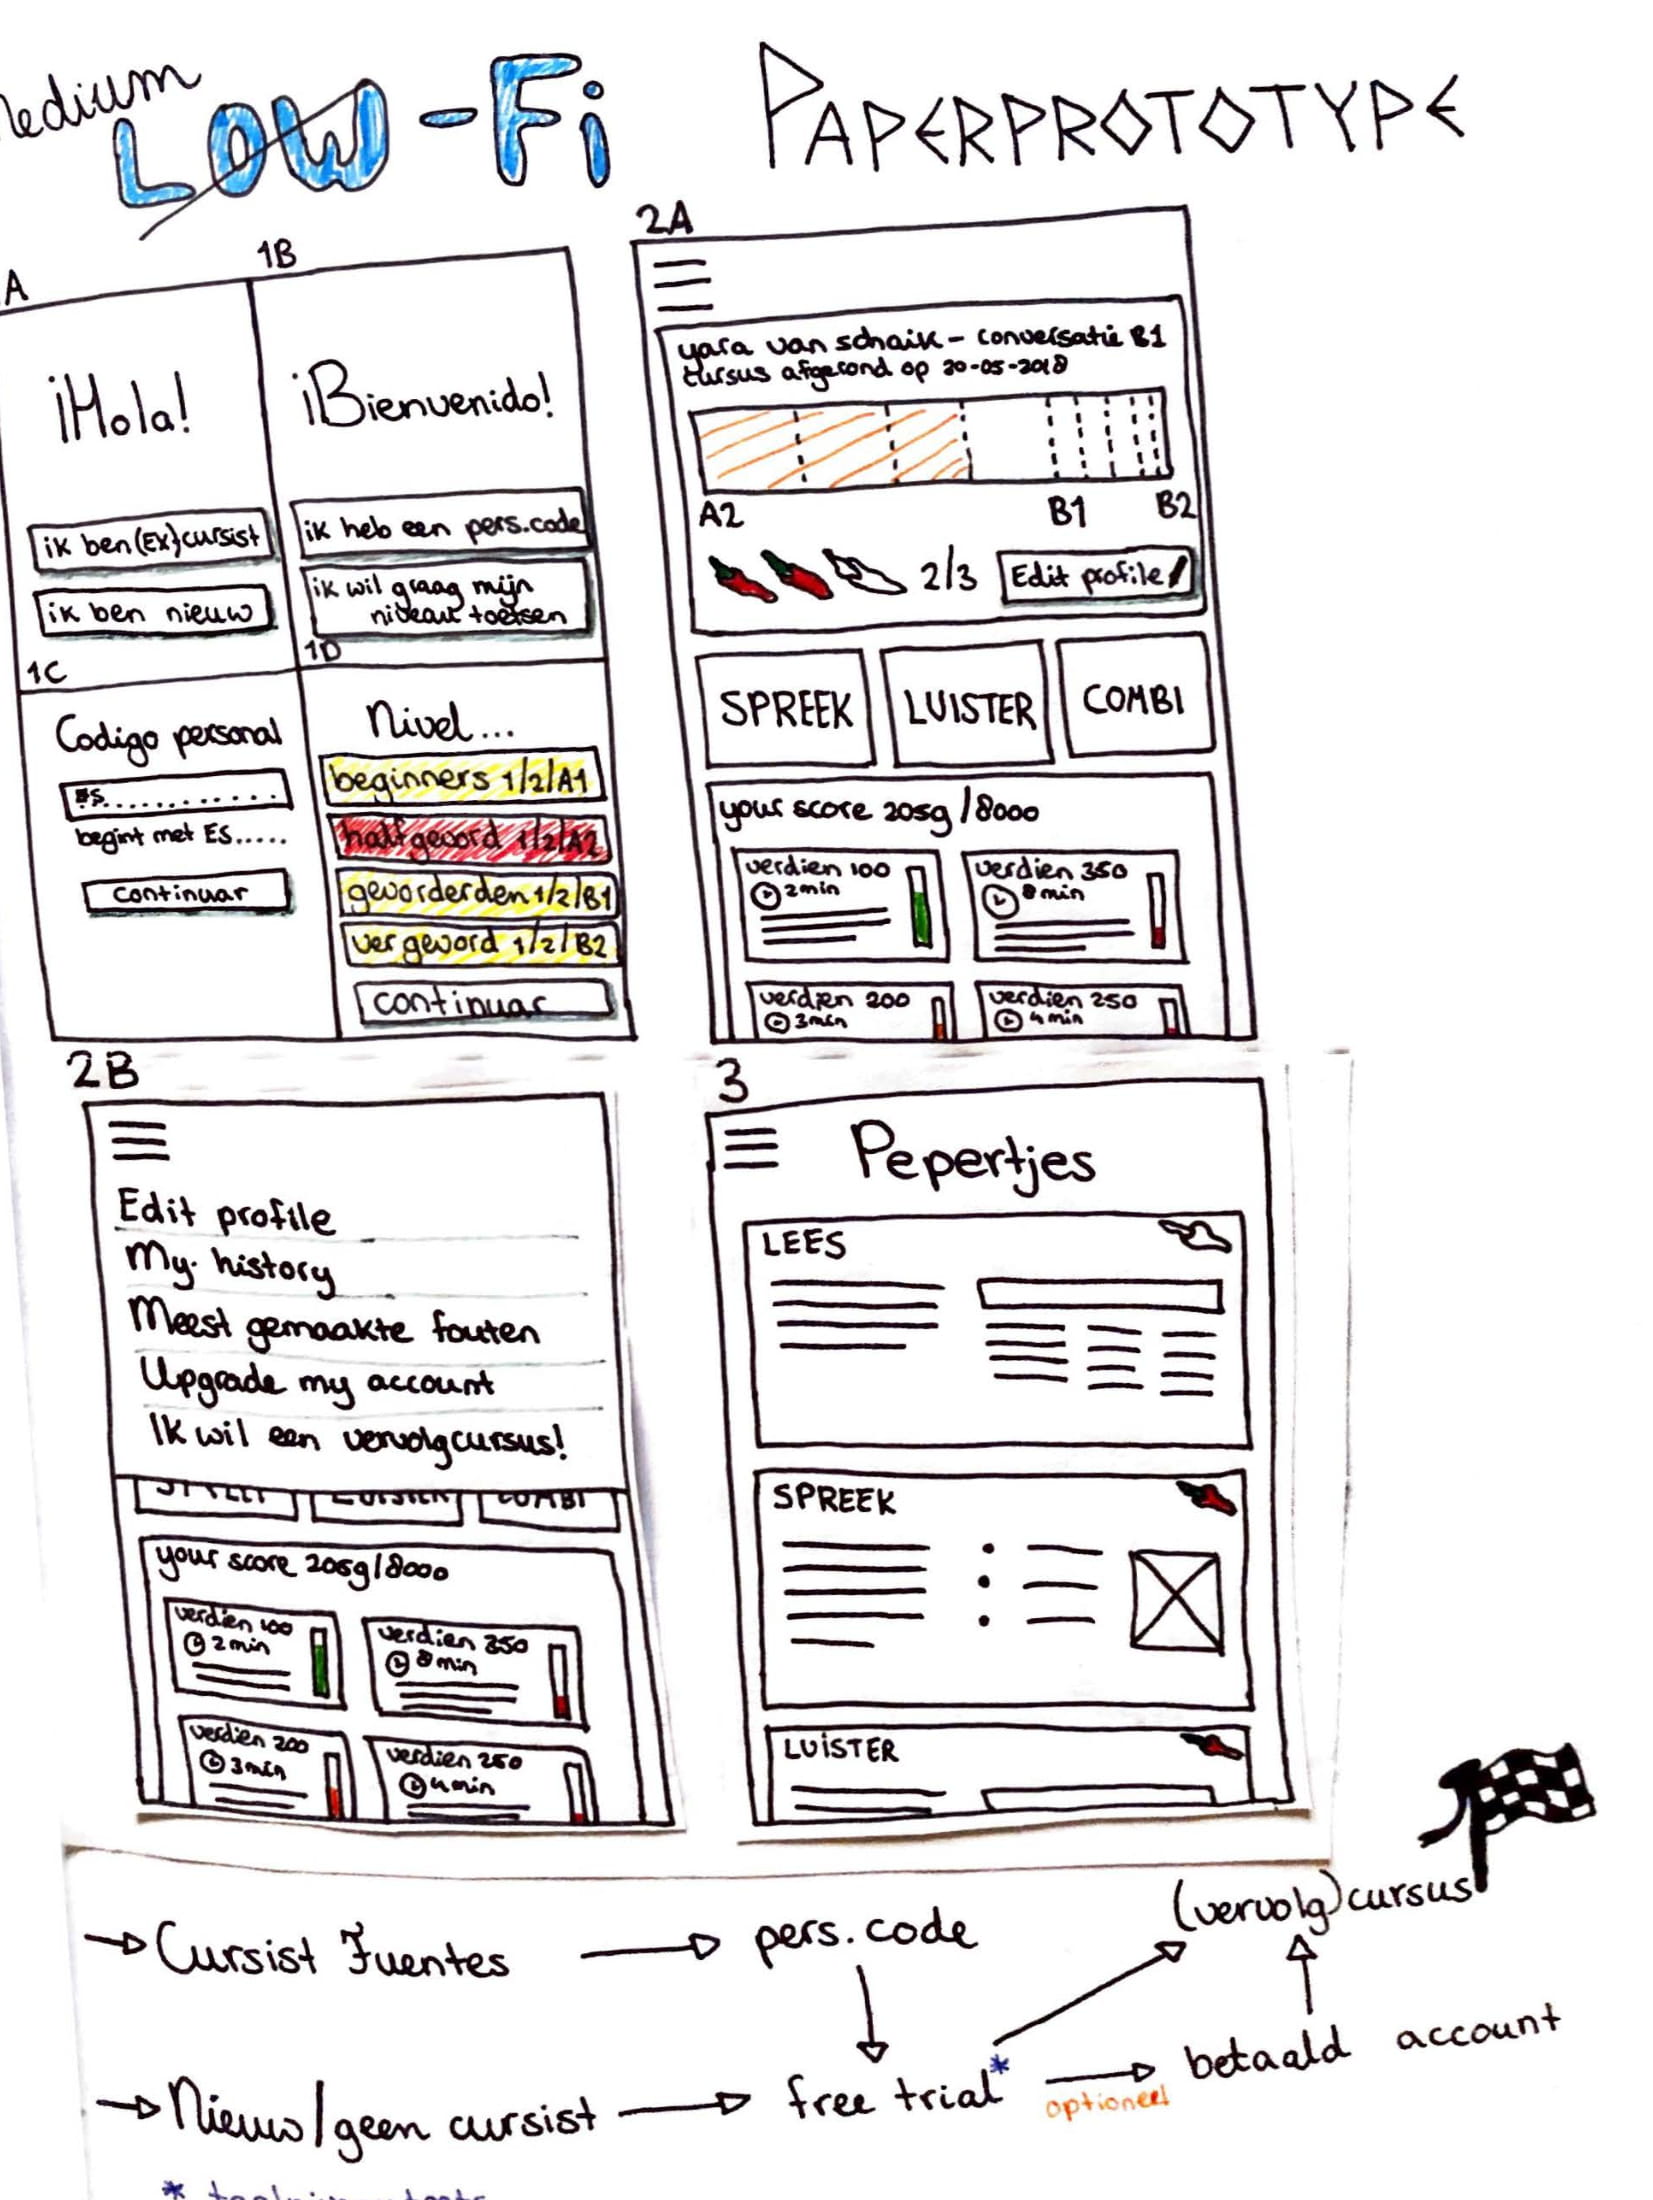 Medium
LOW-Fi PAPERPROTOTYPE
A
¡Hola!
ik ben (Ex) cursist
ik ben nieuw
1B
¡Bienvenido!
ik heb een pers.code
ik wil graag mijn
niveau toetsen
1C
Codigo personal
ES............
begint met ES.....
continuar
1D
Nivel...
beginners 1/2/A1
halfgevord 1/2/A2
gevorderden 1/2/B1
ver gevord 1/2/B2
continuar
2A
yara van schaik - conversatie B1
cursus afgerond op 20-05-2018
A2 B1 B2
2/3 Edit profile
SPREEK LUISTER COMBI
your score 2059/8000
verdien 100
2min
verdien 350
8 min
verdien 200
3min
verdien 250
4 min
2B
Edit profile
My history
Meest gemaakte fouten
Upgrade my account
Ik wil een vervolgcursus!
SPREEK LUISTER COMBI
your score 2059/8000
verdien 100
2 min
verdien 350
8 min
verdien 200
3min
verdien 250
4min
3
Pepertjes
LEES
SPREEK
LUISTER
(vervolg)cursus
Cursist Fuentes pers.code
Nieuw/geen cursist free trial* optioneel betaald account